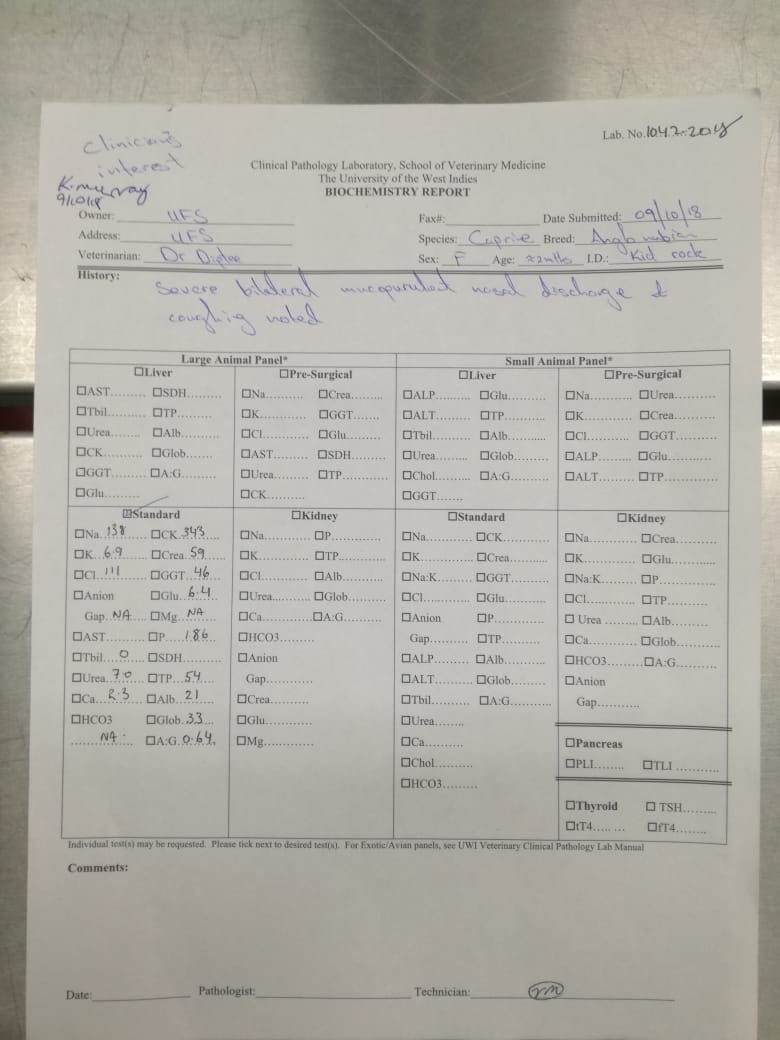 Clinician's
interest
K. Murray
9/10/18
Lab. No.1042-2018
Clinical Pathology Laboratory, School of Veterinary Medicine
The University of the West Indies
BIOCHEMISTRY REPORT
Owner: UFS Fax#: Date Submitted: 09/10/18
Address: UFS Species: Caprine Breed: Anglo nubian
Veterinarian: Dr Diptee Sex: F Age: ≈2mths I.D.: Kid rock
History: Severe bilateral mucopurulent nasal discharge &
coughing noted
Large Animal Panel* Small Animal Panel*
☐Liver
☐AST......... ☐SDH.........
☐Tbil.......... ☐TP...........
☐Urea........ ☐Alb..........
☐CK.......... ☐Glob........
☐GGT........ ☐A:G.........
☐Glu..........
☐Pre-Surgical
☐Na.......... ☐Crea.........
☐K............ ☐GGT.........
☐Cl........... ☐Glu.........
☐AST........ ☐SDH.........
☐Urea....... ☐TP...........
☐CK..........
☐Liver
☐ALP......... ☐Glu...........
☐ALT......... ☐TP............
☐Tbil.......... ☐Alb...........
☐Urea........ ☐Glob.........
☐Chol........ ☐A:G..........
☐GGT.......
☐Pre-Surgical
☐Na.......... ☐Urea.........
☐K............ ☐Crea.........
☐Cl........... ☐GGT.........
☐ALP........ ☐Glu..........
☐ALT........ ☐TP...........
☑Standard
☐Na 138 ☐CK 343
☐K 6.9 ☐Crea 59
☐Cl 111 ☐GGT 46
☐Anion ☐Glu 6.4
Gap NA ☐Mg NA
☐AST.......... ☐P 1.86
☐Tbil 0 ☐SDH.........
☐Urea 7.0 ☐TP 54
☐Ca 2.3 ☐Alb 21
☐HCO3 ☐Glob 33
NA ☐A:G 0.64
☐Kidney
☐Na.......... ☐P............
☐K............ ☐TP..........
☐Cl........... ☐Alb.........
☐Urea........ ☐Glob.......
☐Ca.......... ☐A:G.........
☐HCO3..........
☐Anion
Gap..........
☐Crea..........
☐Glu............
☐Mg............
☐Standard
☐Na............ ☐CK..........
☐K.............. ☐Crea.........
☐Na:K......... ☐GGT.........
☐Cl............. ☐Glu..........
☐Anion ☐P............
Gap........... ☐TP..........
☐ALP.......... ☐Alb..........
☐ALT.......... ☐Glob........
☐Tbil........... ☐A:G.........
☐Urea........
☐Ca..........
☐Chol.........
☐HCO3.........
☐Kidney
☐Na........... ☐Crea.........
☐K............. ☐Glu...........
☐Na:K........ ☐P..............
☐Cl............ ☐TP............
☐ Urea ........ ☐Alb..........
☐Ca........... ☐Glob.........
☐HCO3....... ☐A:G..........
☐Anion
Gap..........
☐Pancreas
☐PLI........ ☐TLI ...........
☐Thyroid ☐ TSH.........
☐tT4........ ☐fT4........
Individual test(s) may be requested. Please tick next to desired test(s). For Exotic/Avian panels, see UWI Veterinary Clinical Pathology Lab Manual
Comments:
Date: Pathologist: Technician: